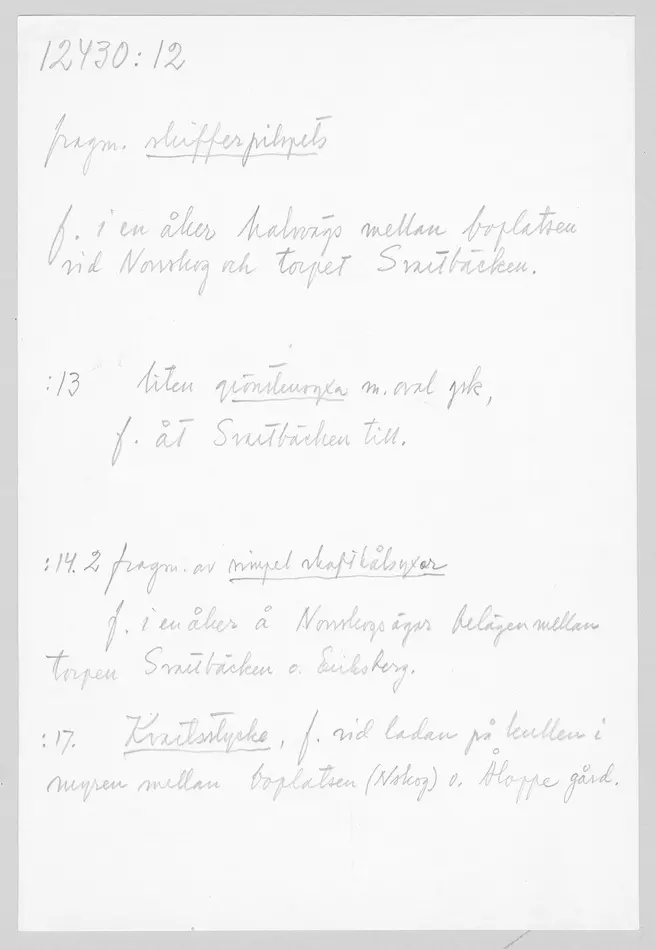 12430:12
fragm. skifferpilspets
f. i en åker halvvägs mellan boplatsen
vid Norrskog och torpet Svartbäcken.
:13 liten grönstensyxa m. oval gsk,
f. åt Svartbäcken till.
:14. 2 fragm. av simpel skafthålsyxor
f. i en åker å Norrskogs ägor belägen mellan
torpen Svartbäcken o. Eriksberg.
:17. Kvartsstycke, f. vid ladan på kullen i
myren mellan boplatsen (Nskog) o. Åloppe gård.